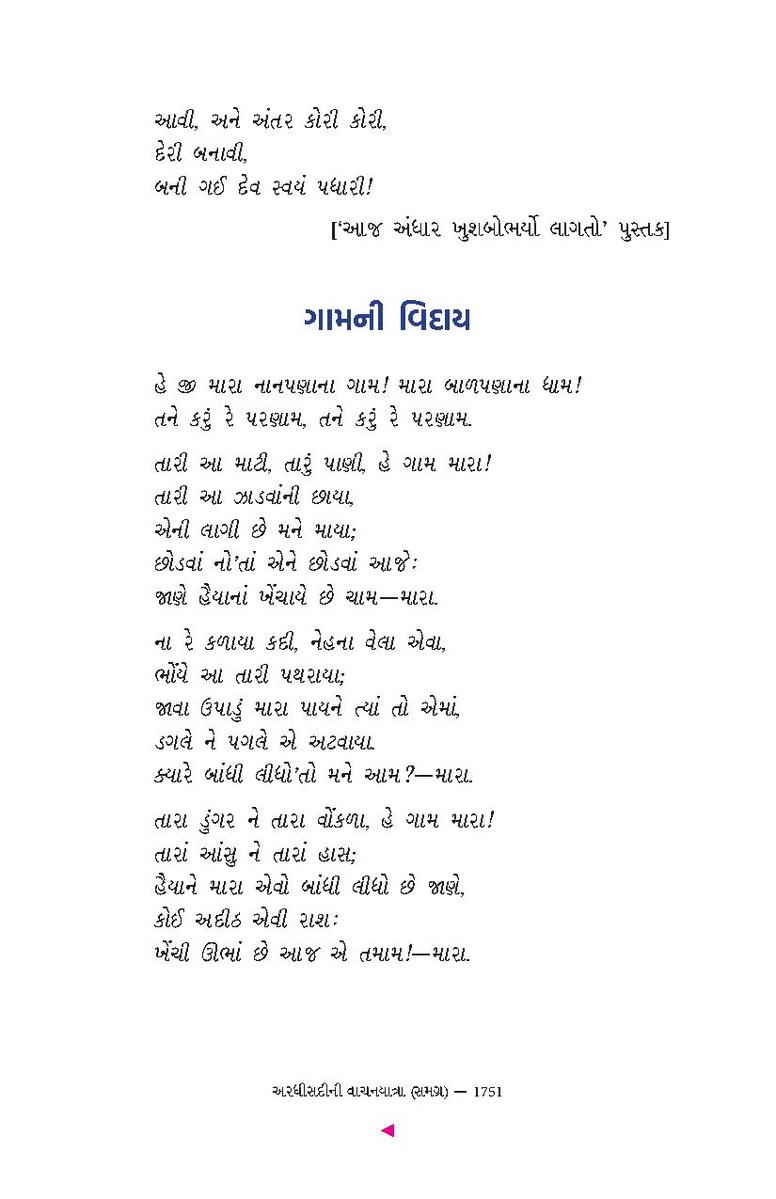 આવી, અને અંતર કોરી કોરી,
દેરી બનાવી,
બની ગઈ દેવ સ્વયં પધારી!
[‘આજ અંધાર ખુશબોભર્યો લાગતો’ પુસ્તક]
ગામની વિદાય
હે જી મારા નાનપણાના ગામ! મારા બાળપણાના ધામ!
તને કરું રે પરણામ, તને કરું રે પરણામ.
તારી આ માટી, તારું પાણી, હે ગામ મારા!
તારી આ ઝાડવાંની છાયા,
એની લાગી છે મને માયા;
છોડવાં નો’તાં એને છોડવાં આજેઃ
જાણે હૈયાનાં ખેંચાયે છે ચામ—મારા.
ના રે કળાયા કદી, નેહના વેલા એવા,
ભોંયે આ તારી પથરાયા;
જાવા ઉપાડું મારા પાયને ત્યાં તો એમાં,
ડગલે ને પગલે એ અટવાયા.
ક્યારે બાંધી લીધો’તો મને આમ?—મારા.
તારા ડુંગર ને તારા વોંકળા, હે ગામ મારા!
તારાં આંસુ ને તારાં હાસ;
હૈયાને મારા એવો બાંધી લીધો છે જાણે,
કોઈ અદીઠ એવી રાશઃ
ખેંચી ઊભાં છે આજ એ તમામ!—મારા.
અરધીસદીની વાચનયાત્રા (સમગ્ર) — 1751